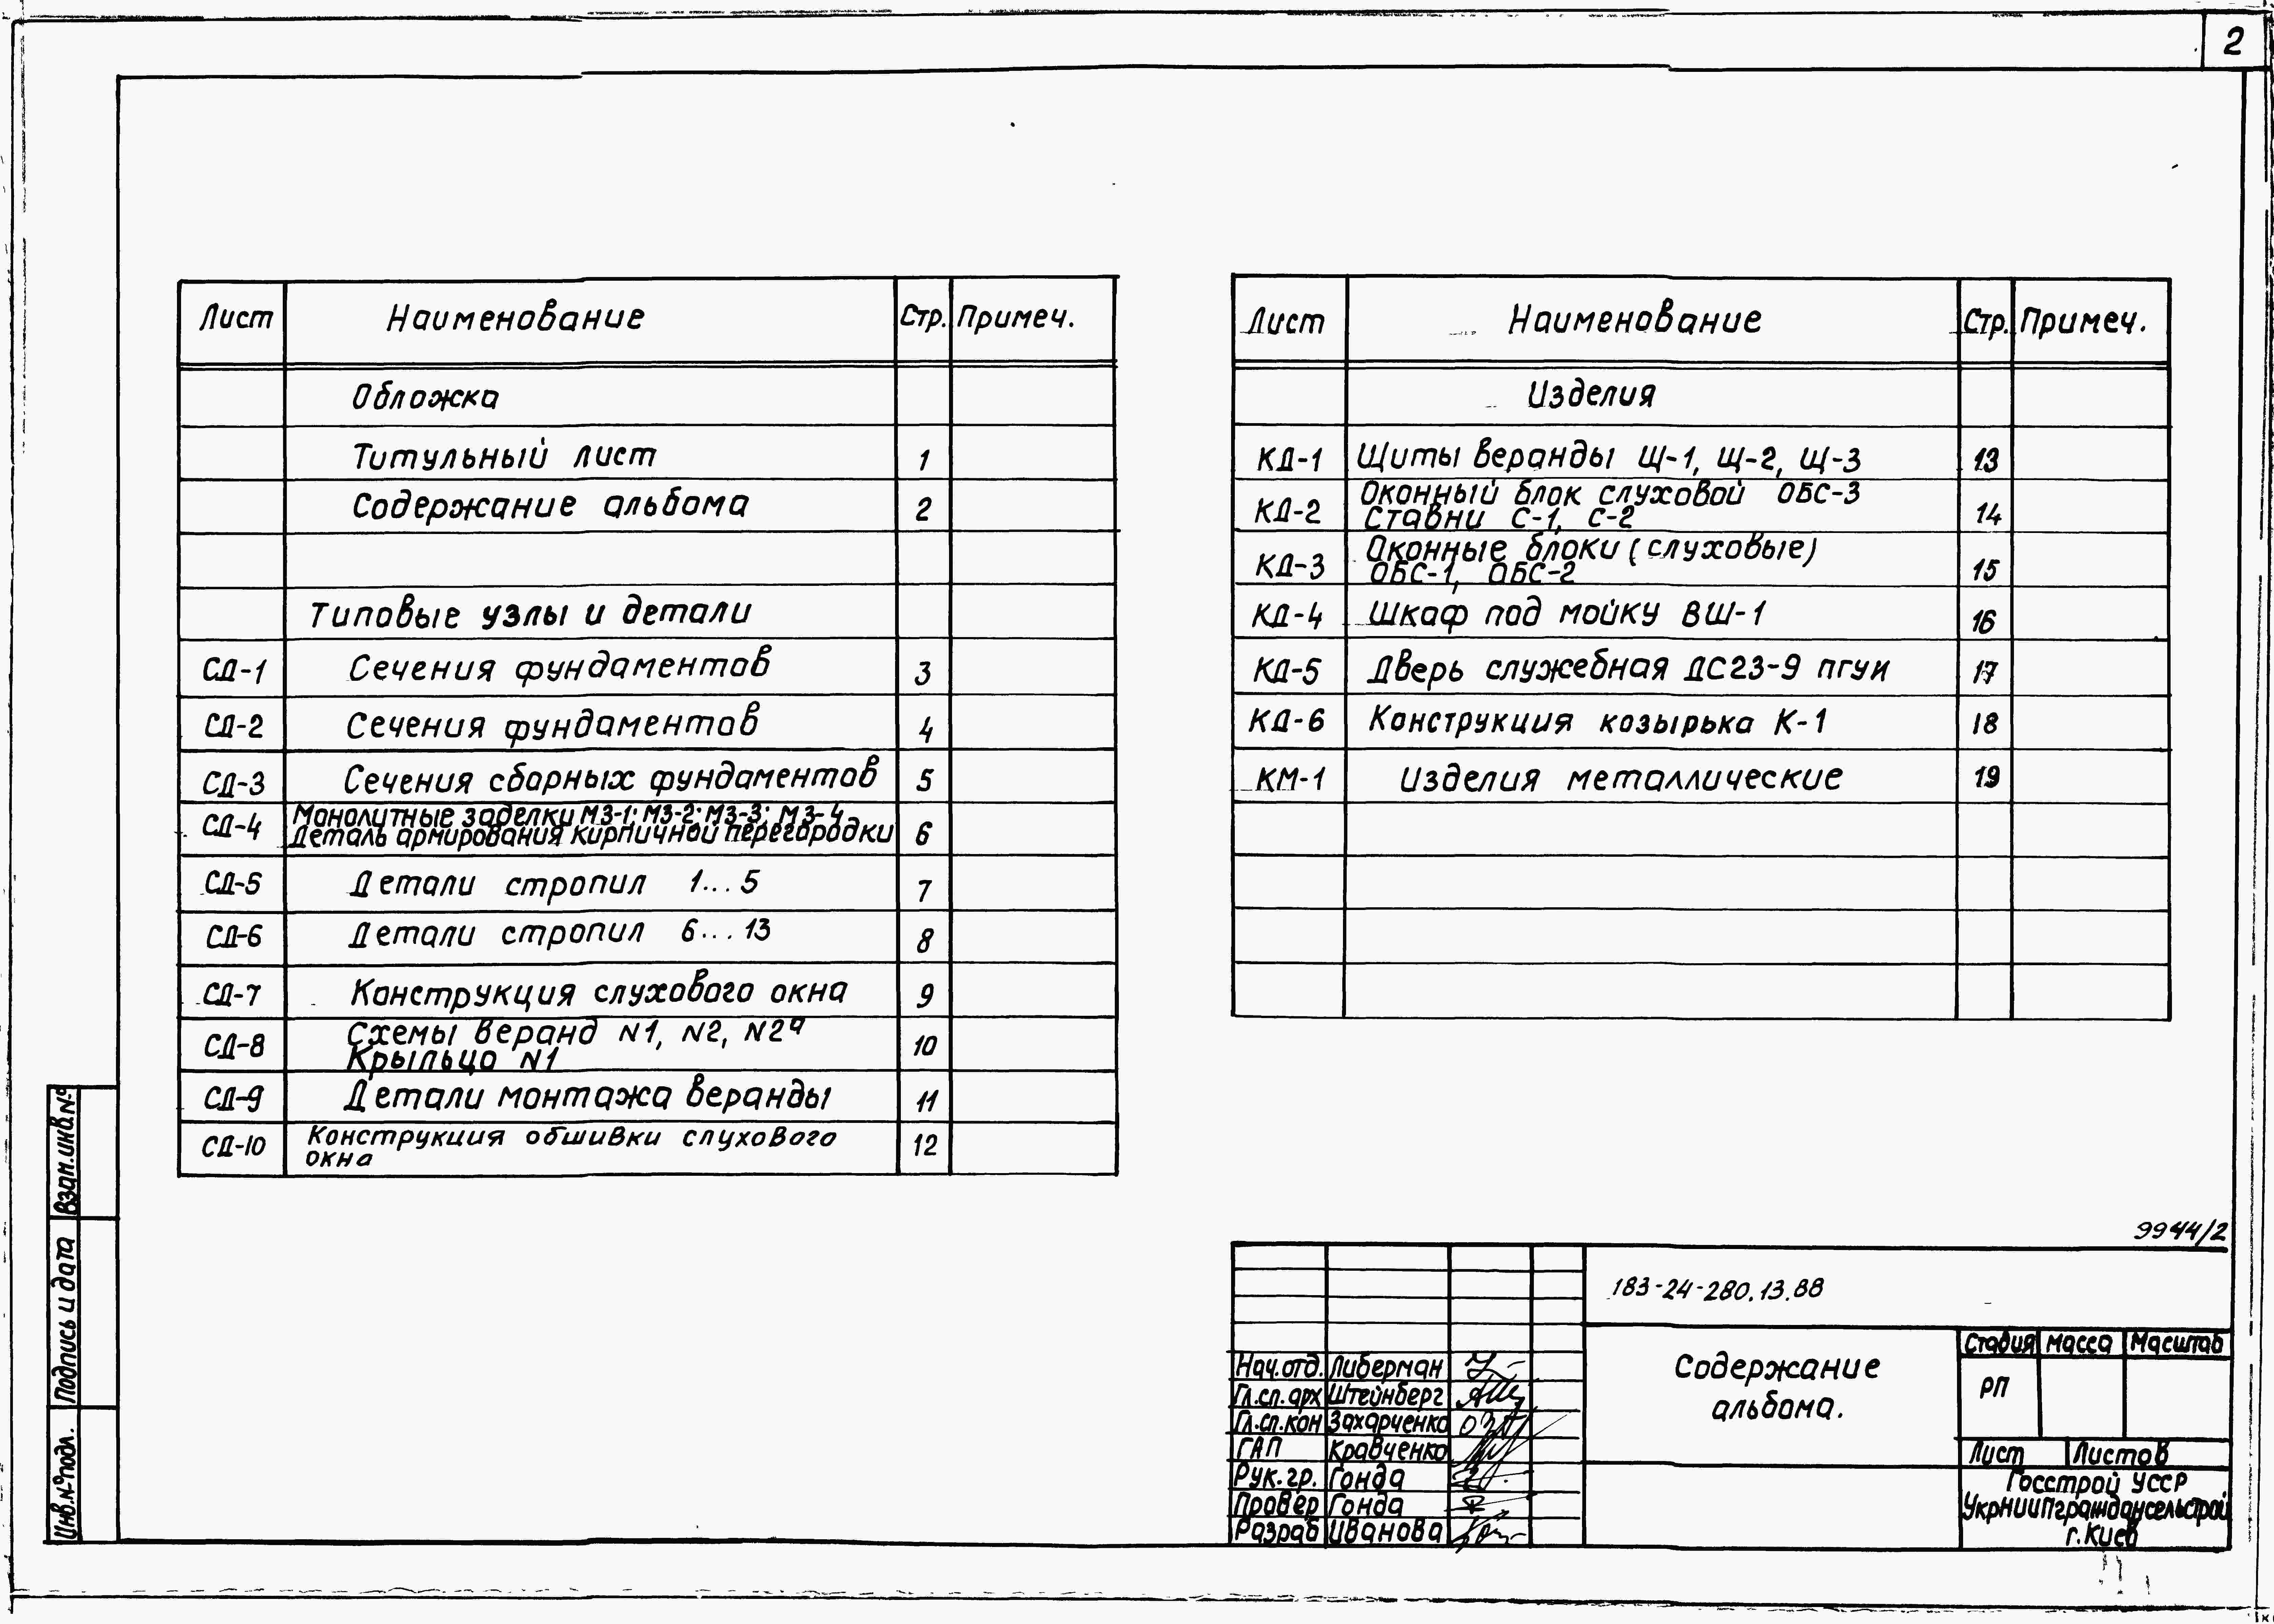 2
Лист Наименование Стр. Примеч.
Обложка
Титульный лист 1
Содержание альбома 2
Типовые узлы и детали
СД-1 Сечения фундаментов 3
СД-2 Сечения фундаментов 4
СД-3 Сечения сборных фундаментов 5
СД-4 Монолитные заделки МЗ-1; МЗ-2; МЗ-3; МЗ-4
Деталь армирования кирпичной перегородки 6
СД-5 Детали стропил 1...5 7
СД-6 Детали стропил 6...13 8
СД-7 Конструкция слухового окна 9
СД-8 Схемы веранд N1, N2, N2а
Крыльцо N1 10
СД-9 Детали монтажа веранды 11
СД-10 Конструкция обшивки слухового
окна 12
Лист Наименование Стр. Примеч.
Изделия
КД-1 Щиты веранды Щ-1, Щ-2, Щ-3 13
КД-2 Оконный блок слуховой ОБС-3
Ставни С-1, С-2 14
КД-3 Оконные блоки (слуховые)
ОБС-1, ОБС-2 15
КД-4 Шкаф под мойку ВШ-1 16
КД-5 Дверь служебная ДС23-9 пгуи 17
КД-6 Конструкция козырька К-1 18
КМ-1 Изделия металлические 19
Взам.инв.№
Подпись и дата
Инв.№подл.
9944/2
183-24-280.13.88
Нач.отд. Либерман
Гл.сп.арх Штейнберг
Гл.сп.кон Захарченко
ГАП Кравченко
Рук.гр. Гонда
Провер Гонда
Разраб Иванова
Содержание
альбома.
Стадия Масса Масштаб
РП
Лист Листов
Госстрой УССР
УкрНИИПграждансельстрой
г.Киев